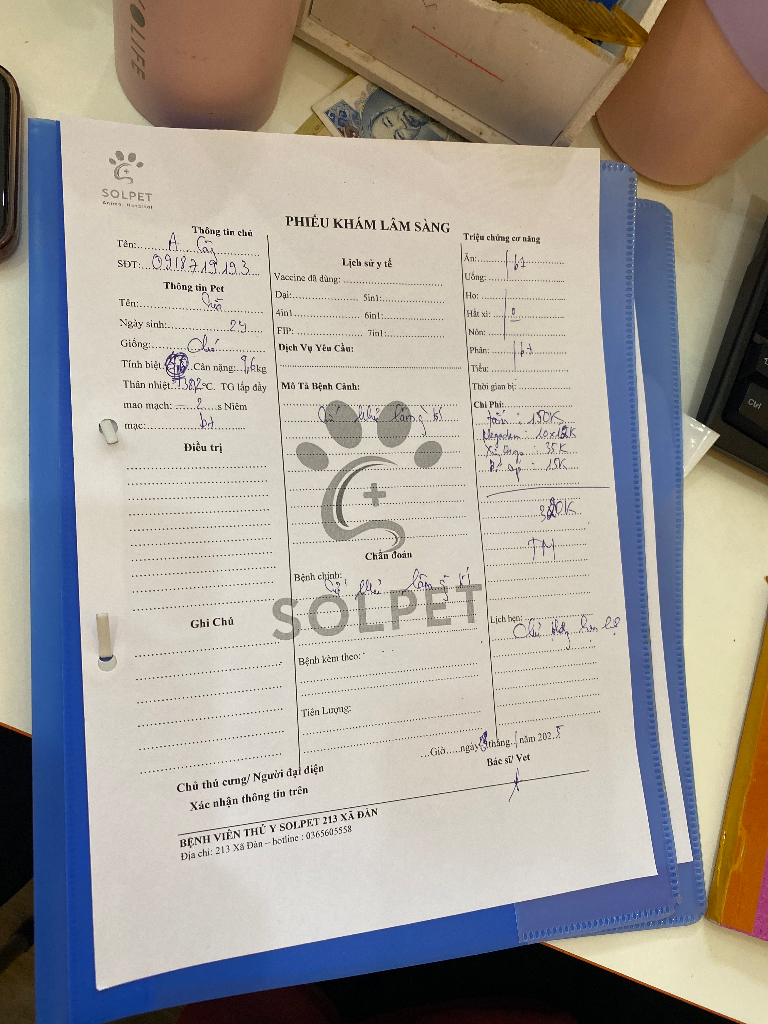 YOLIFE
SOLPET
Animal Hospital
PHIẾU KHÁM LÂM SÀNG
Thông tin chủ
Tên: A
SĐT: 0918719193
Thông tin Pet
Tên:
Ngày sinh: 2y
Giống: Chó
Tính biệt: Cân nặng: 9,6 kg
Thân nhiệt: 38,2 °C. TG lấp đầy
mao mạch: 2 s Niêm
mạc: bt
Điều trị
Ghi Chú
Lịch sử y tế
Vaccine đã dùng:
Dại: 5in1:
4in1 6in1:
FIP: 7in1:
Dịch Vụ Yêu Cầu:
Mô Tả Bệnh Cảnh:
Chẩn đoán
Bệnh chính:
SOLPET
Bệnh kèm theo:
Tiên Lượng:
Triệu chứng cơ năng
Ăn: bt
Uống:
Ho:
Hắt xì: 0
Nôn:
Phân: bt
Tiểu:
Thời gian bị:
Chi Phí:
: 150K
: 10x12K
: 35K
: 15K
320K
TM
Lịch hẹn: Chủ
...Giờ.....ngày tháng 1 năm 2025
Bác sĩ/ Vet
Chủ thú cưng/ Người đại diện
Xác nhận thông tin trên
BỆNH VIỆN THÚ Y SOLPET 213 XÃ ĐÀN
Địa chỉ: 213 Xã Đàn – hotline : 0365605558
Ctrl